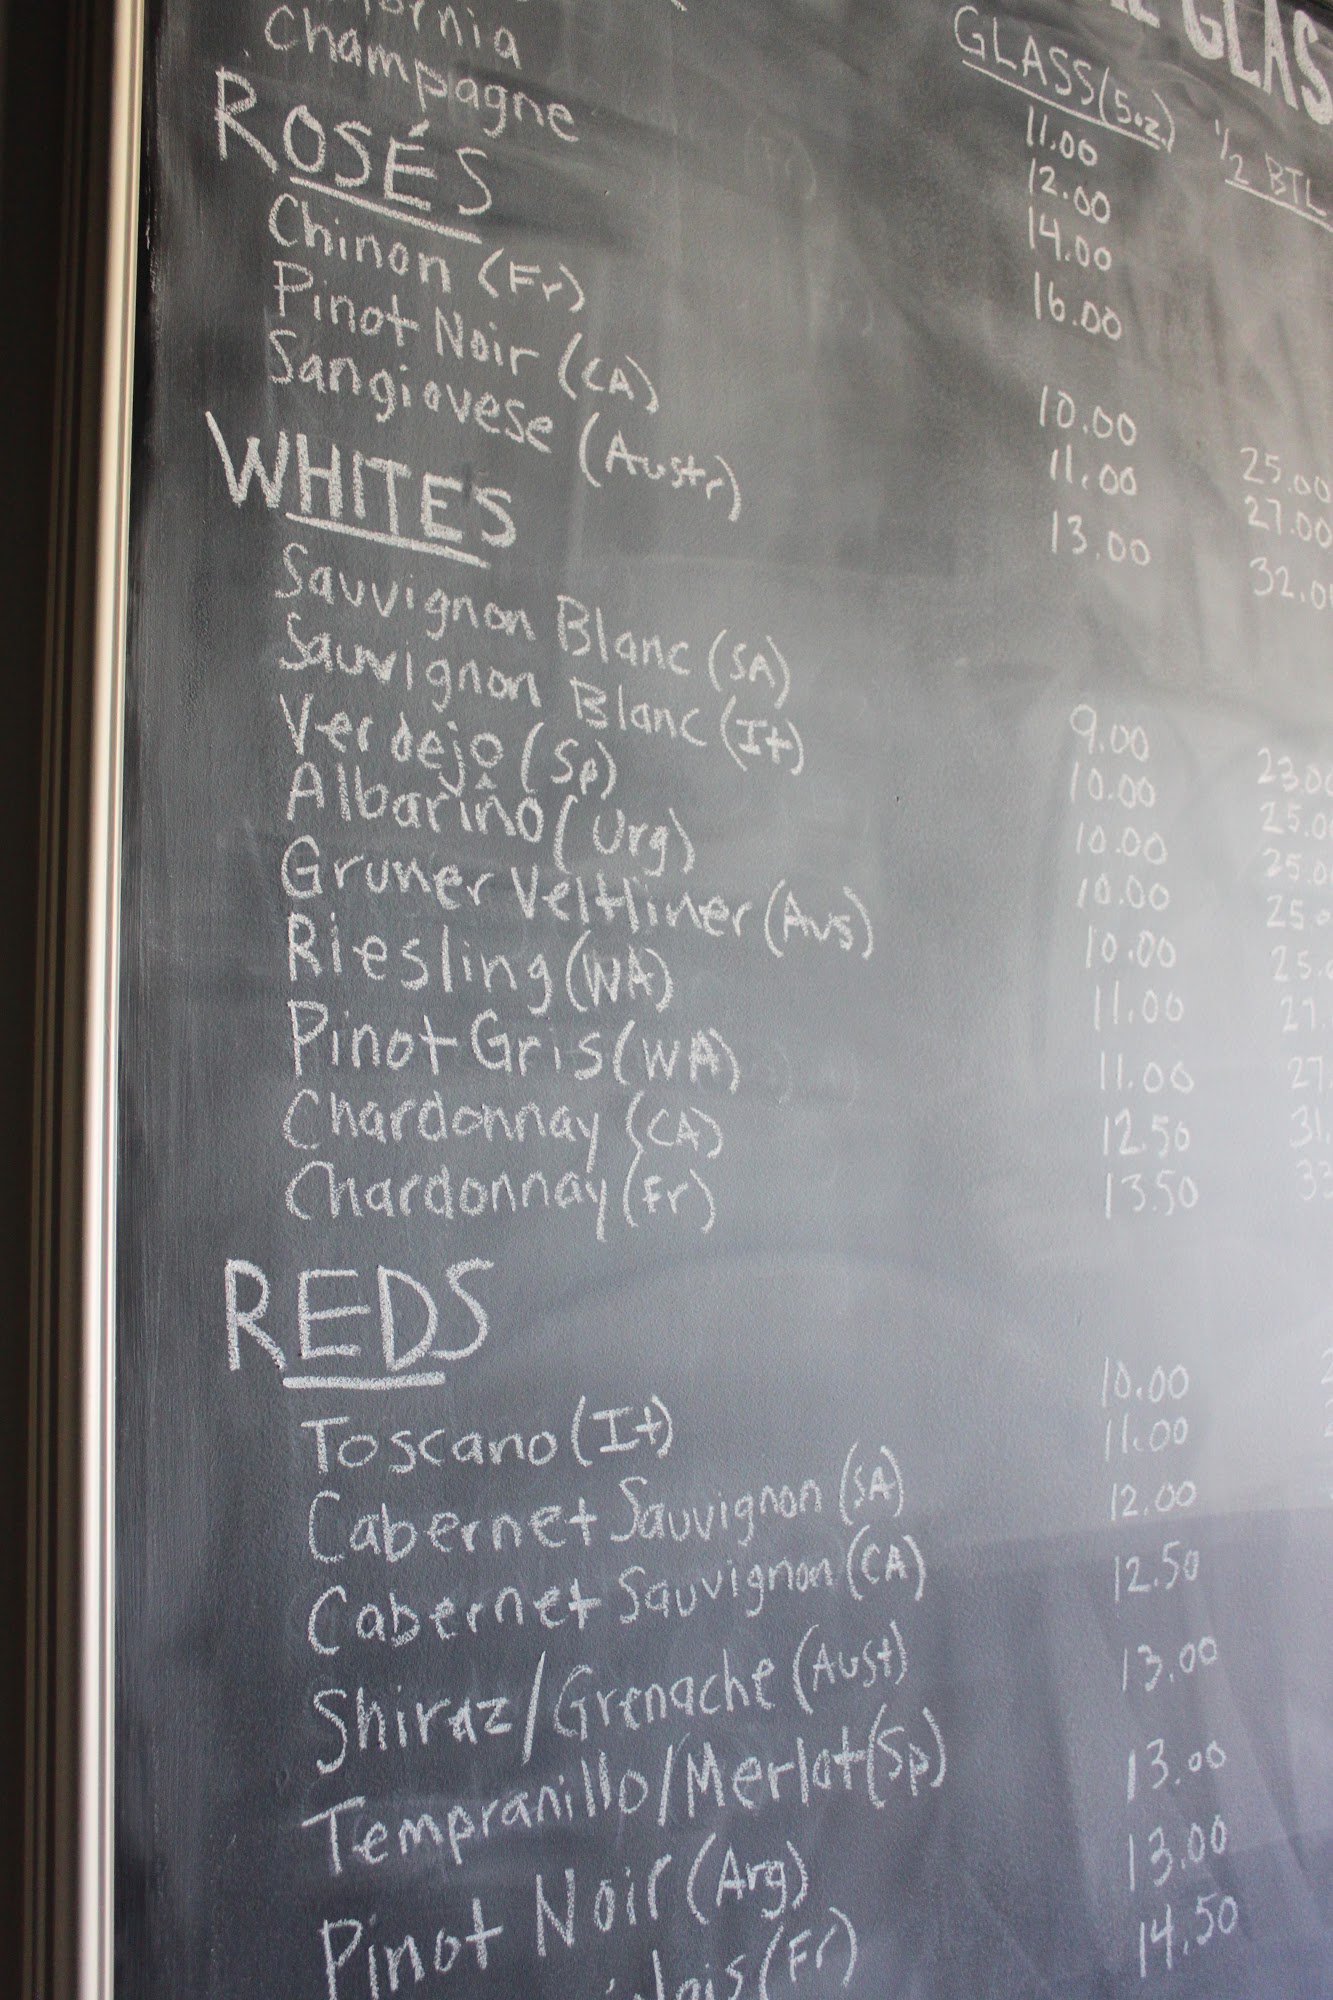 GLAS
rnia
Champagne
GLASS (5oz.) 1/2 BTL
11.00
12.00
14.00
16.00
ROSÉS
Chinon (Fr) 10.00 25.00
Pinot Noir (CA) 11.00 27.00
Sangiovese (Austr) 13.00 32.0
WHITES
Sauvignon Blanc (SA) 9.00 23.00
Sauvignon Blanc (It) 10.00 25.0
Verdejo (Sp) 10.00 25.0
Albariño (Urg) 10.00 25.
Gruner Veltliner (Aus) 10.00 25.
Riesling (WA) 11.00 27.
Pinot Gris (WA) 11.00 27
Chardonnay (CA) 12.50 31.
Chardonnay (Fr) 13.50 33
REDS
Toscano (It) 10.00
Cabernet Sauvignon (SA) 11.00
Cabernet Sauvignon (CA) 12.00
Shiraz/Grenache (Aust) 12.50
Tempranillo/Merlot (Sp) 13.00
Pinot Noir (Arg) 13.00
(Fr) 13.00
14.50